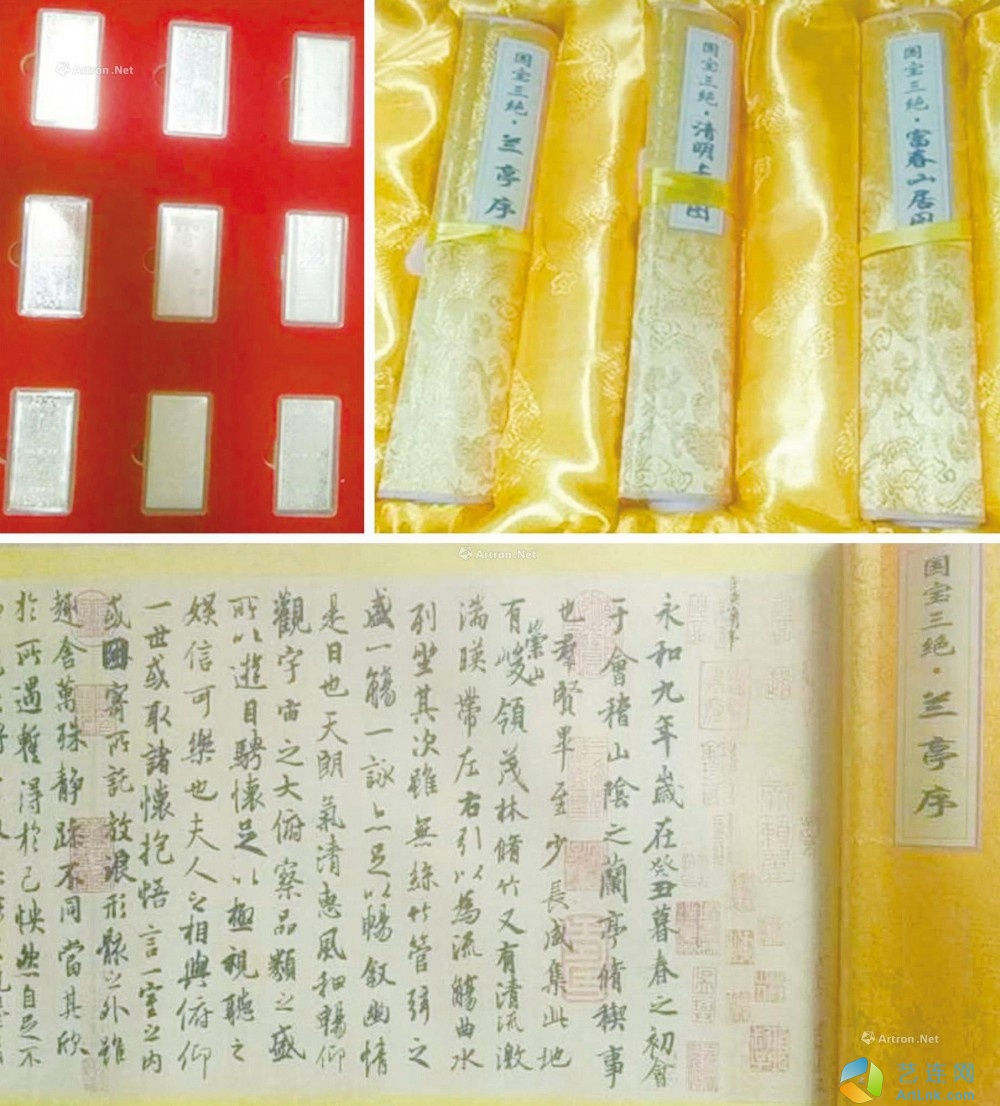 Artron.Net
国宝三绝·兰亭序
国宝三绝·清明上图
国宝三绝·富春山居图
Artron.Net
国宝三绝·兰亭序
永和九年歲在癸丑暮春之初會
于會稽山陰之蘭亭脩稧事
也羣賢畢至少長咸集此地
有崇山峻領茂林脩竹又有清流激
湍暎帶左右引以為流觴曲水
列坐其次雖無絲竹管弦之
盛一觴一詠亦足以暢敘幽情
是日也天朗氣清惠風和暢仰
觀宇宙之大俯察品類之盛
所以遊目騁懷足以極視聽之
娛信可樂也夫人之相與俯仰
一世或取諸懷抱悟言一室之內
或因寄所託放浪形骸之外雖
趣舍萬殊靜躁不同當其欣
於所遇暫得於己怏然自足不
Artron.Net
艺连网
ArtLnk.com